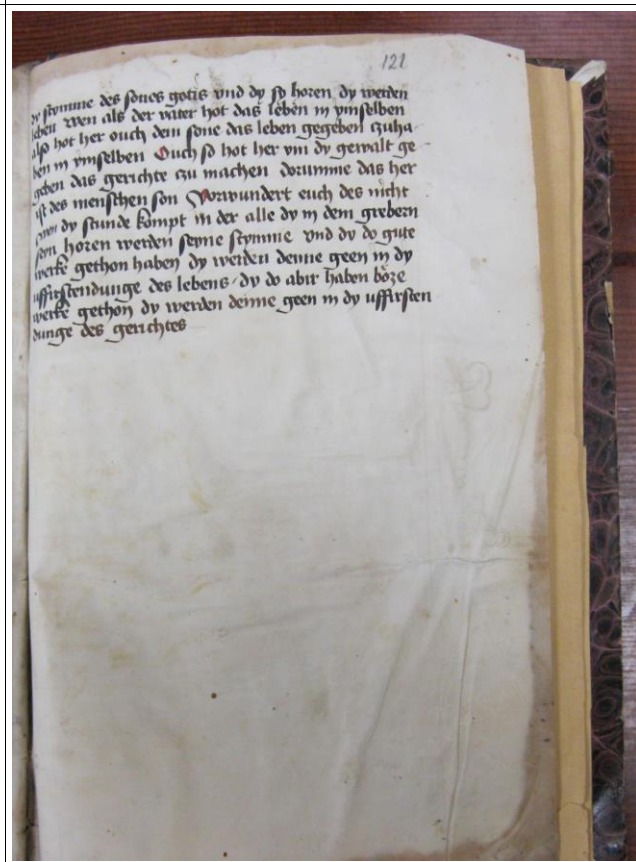 121
dy stymme des sones gotis vnd dy sy horen dy werden
leben Wen als der vater hot das leben in ymselben
also hot her ouch dem sone das leben gegeben czuha
ben in ymselben Ouch so hot her ym dy gewalt ge
geben das gerichte czu machen dorumme das her
ist des menschen son Vorwundert euch des nicht
wen dy stunde kompt in der alle dy in dem grebern
sein horen werden seyne stymme vnd dy do gute
werke gethon haben dy werden denne geen in dy
uffirstendunge des lebens / dy do abir haben böze
werke gethon dy werden denne geen in dy uffirsten
dunge des gerichtes